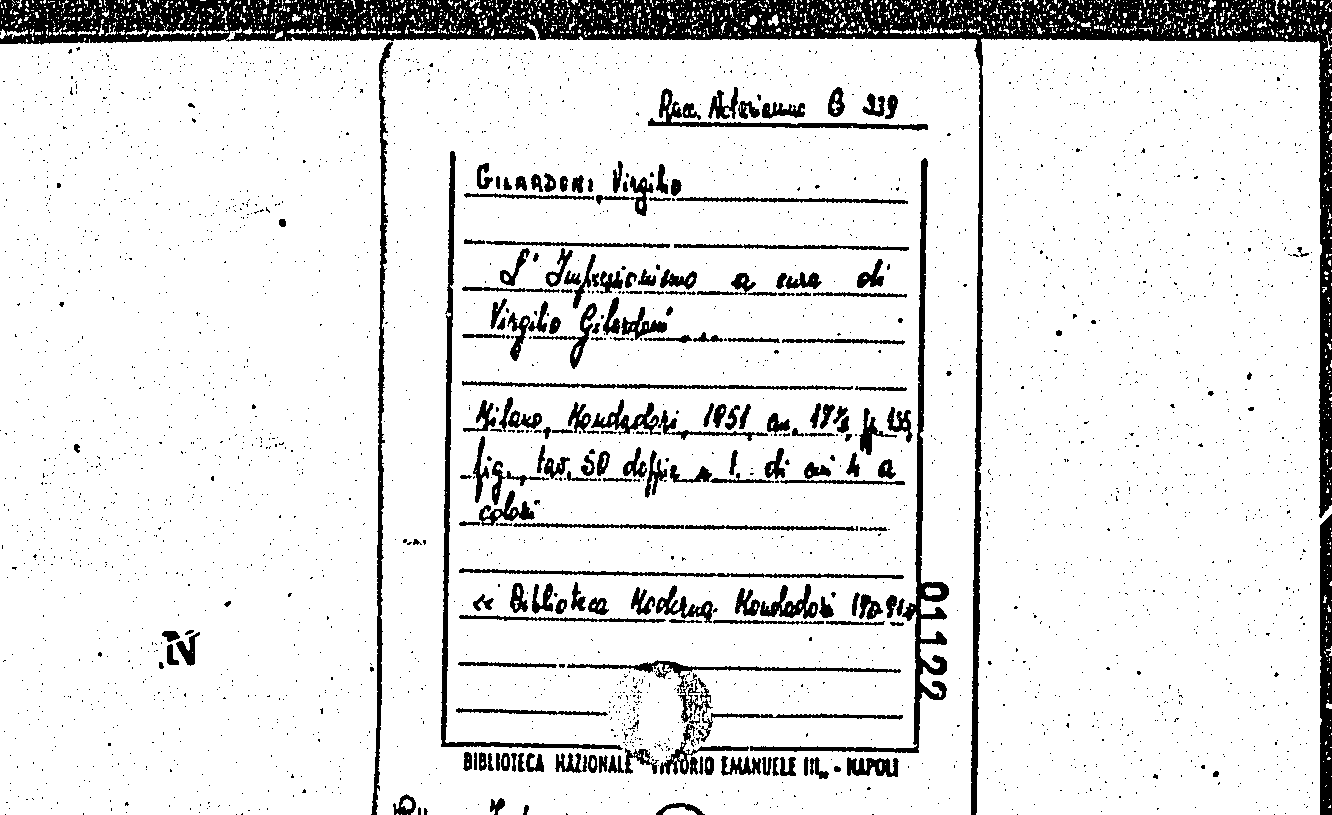 Racc. Acterianne B 239
GILARDONI, Virgilio
L' Impressionismo a cura di
Virgilio Gilardoni ...
Milano, Mondadori, 1951, in. 17°, pp. 135,
fig., tav. 50 doppie n. t. di cui 4 a
colori
« Biblioteca Moderna Mondadori
01122
IV
BIBLIOTECA NAZIONALE VITTORIO EMANUELE III„ - NAPOLI